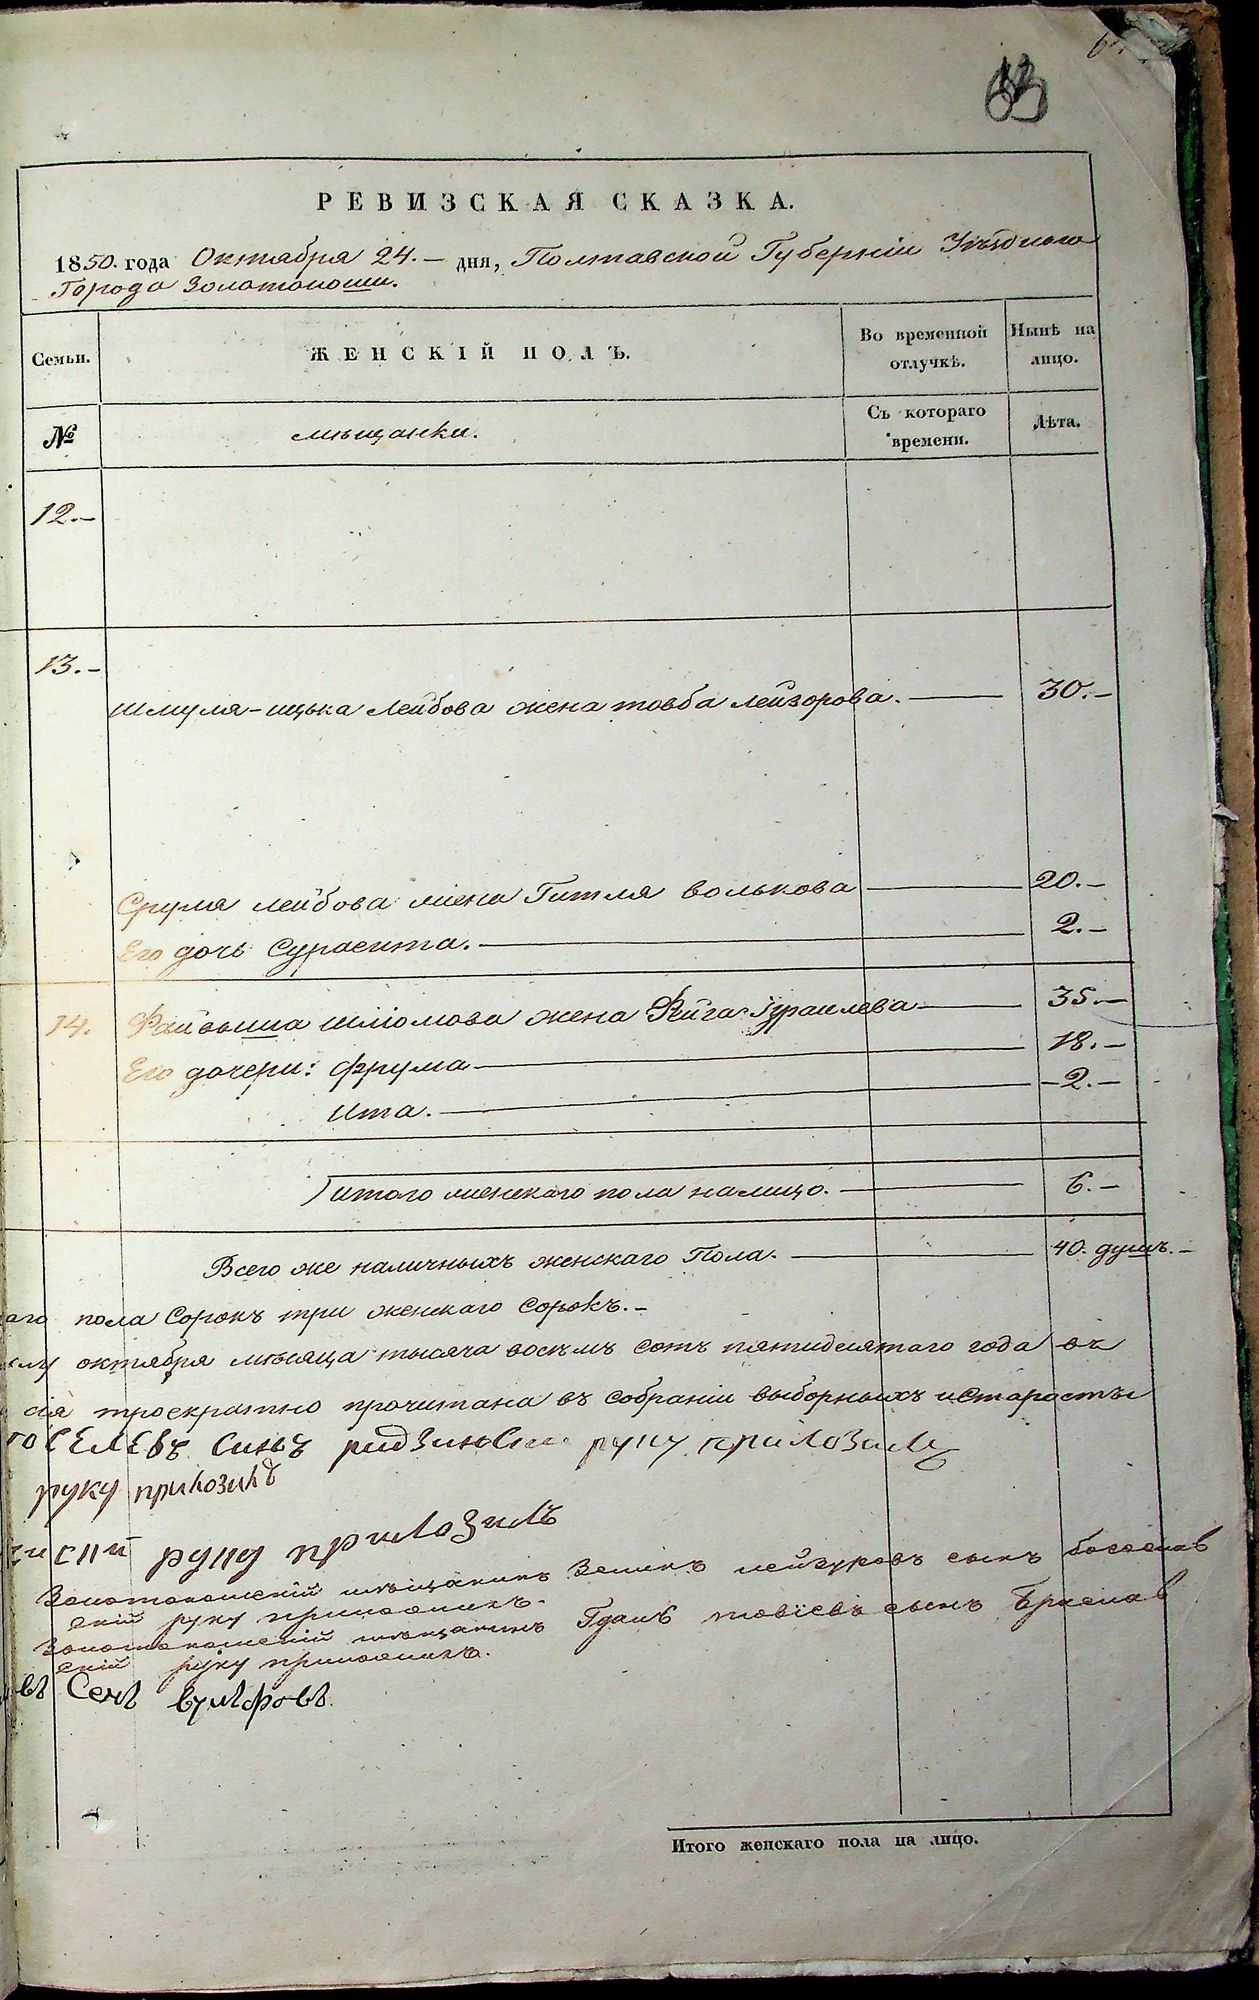 РЕВИЗСКАЯ СКАЗКА.
1850. года Октября 24. – дня, Полтавской Губерніи Уѣзднаго
Города Золотоноши.
Семьи.
ЖЕНСКІЙ ПОЛЪ.
Во временной отлучкѣ.
Ныне на лицо.
№
мѣщанки.
Съ котораго времени.
Лѣта.
12.–
13.–
Шмуля-ицька Лейбова жена товба лейзорова. 30.–
Сруля лейбова жена Гитля волькова 20.–
Его дочь Сурасита. 2.–
14. Файвыша шліомова жена Фейга Израилева 35.–
Его дочери: Фрума 18.–
Ита. –2.–
итого женскаго пола налицо. 6.–
Всего же наличныхъ женскаго Пола. 40. душъ.–
аго пола Сорокъ три женскаго сорокъ.–
октября мѣсяца тысяча восемь сотъ пятидесятаго года въ
сія троекратно прочитана въ собраніи выборныхъ и старосты
руку приложилъ
руку приложилъ
руку приложилъ
Золотоношскій мѣщанинъ лейзуровъ сынъ
скій руку приложилъ.
Золотоношскій мѣщанинъ товіевъ сынъ
скій руку приложилъ.
Итого женскаго пола на лицо.